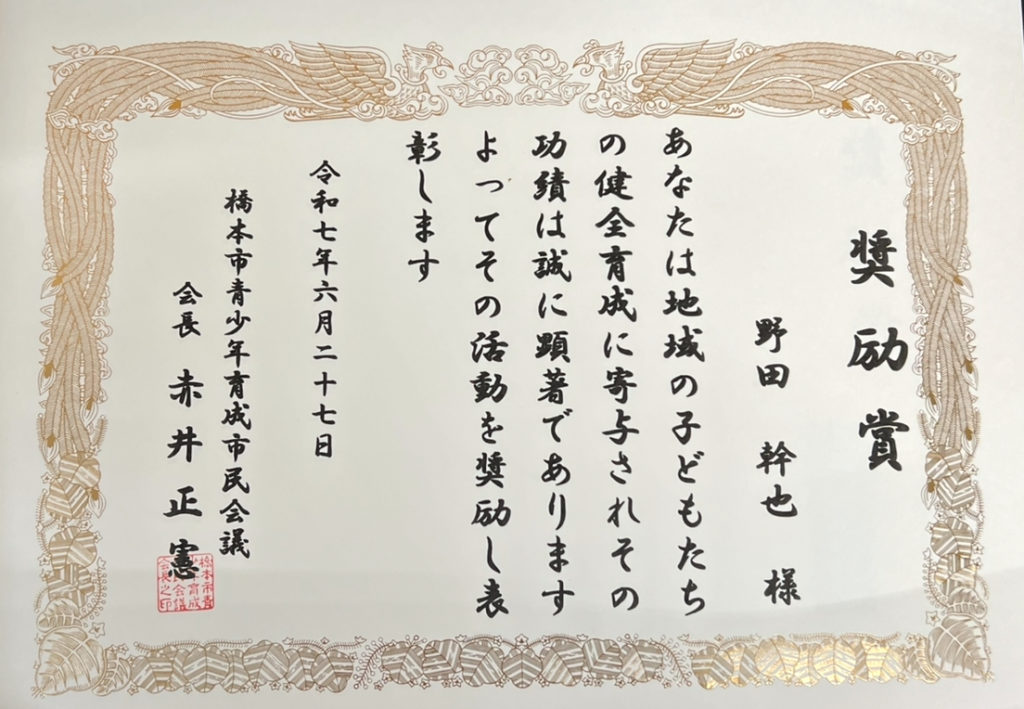 奨励賞
野田 幹也 様
あなたは地域の子どもたち
の健全育成に寄与されその
功績は誠に顕著であります
よってその活動を奨励し表
彰します
令和七年六月二十七日
橋本市青少年育成市民会議
会長 赤井正憲
橋本市青
少年育成
市民会議
会長之印